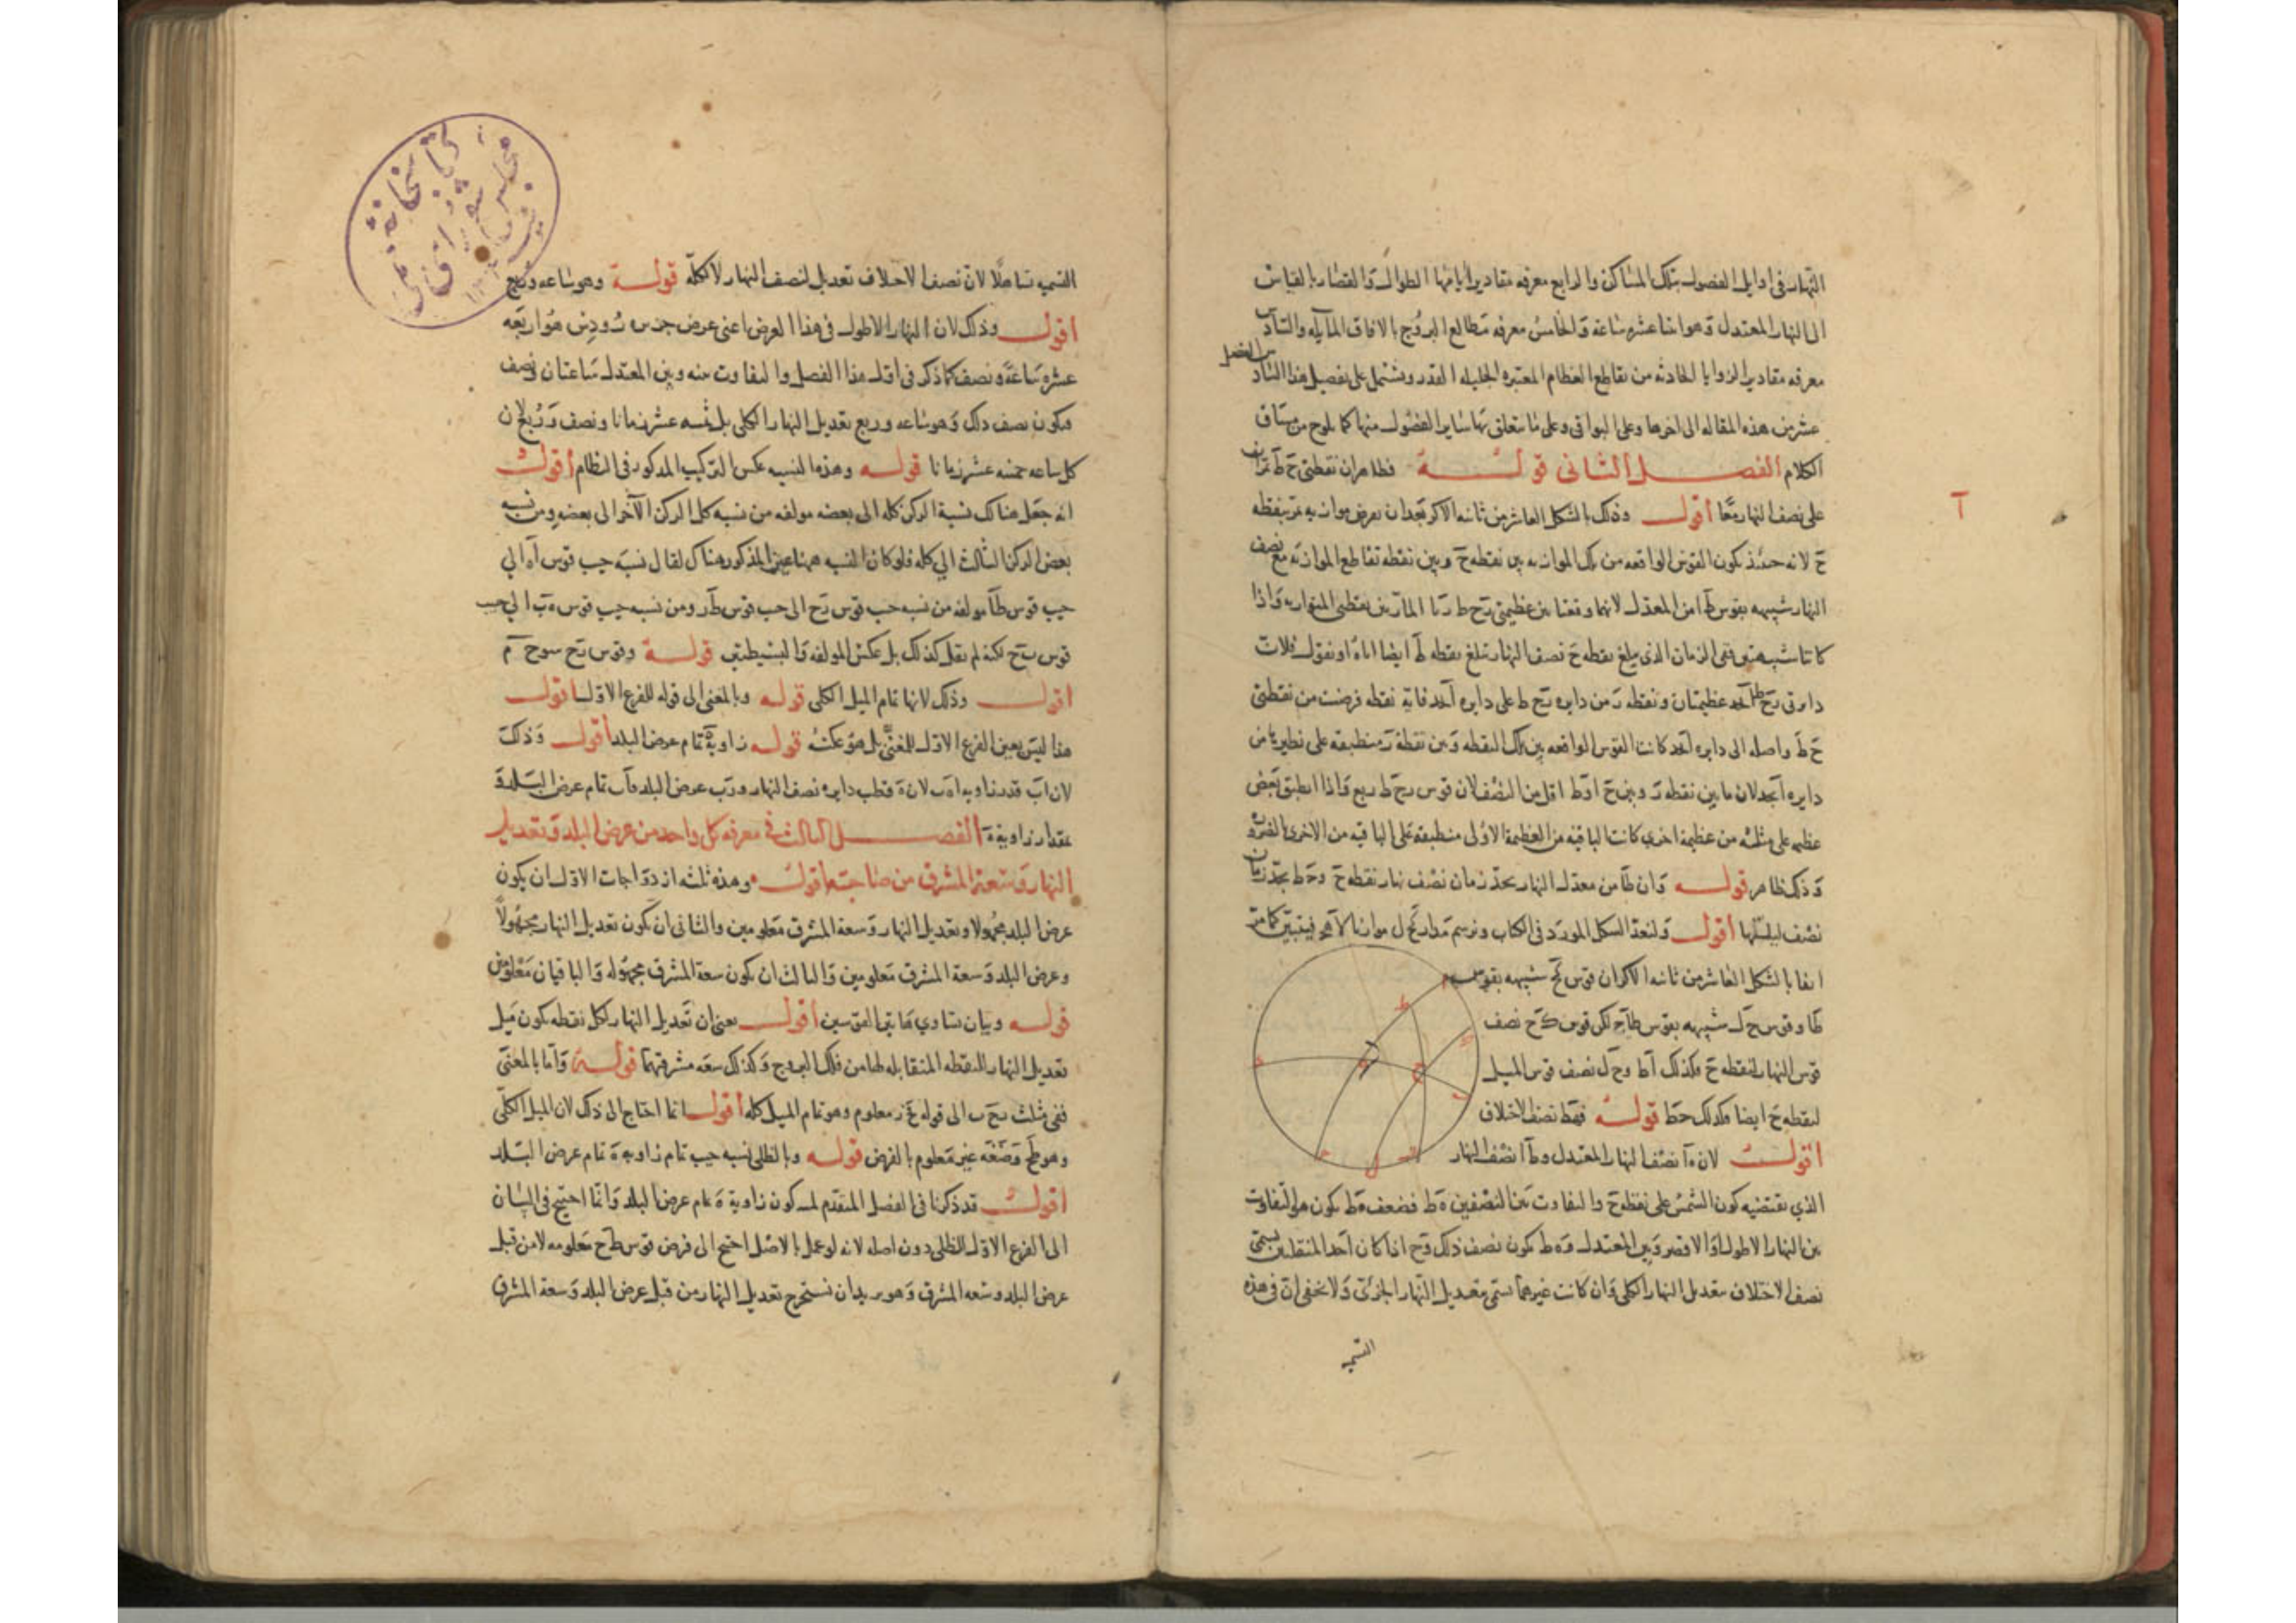 النهار فى اوايل الفصول بتلك المساكن والرابع معرفه مقادير ايامها الطوال والقصار بالقياس
الى النهار المعتدل وهو اثنا عشر ساعة والخامس معرفه مطالع البروج بالافاق المايله والسادس
معرفه مقادير الزوايا الحادثه من تقاطع العظام المعتبره الجليله القدر ويشتمل على تفصيل هذا
من الفصل
عشر من هذه المقاله الى اخرها وعلى البواقى وعلى ما يتعلق بها ساير الفصول منها كما يلوح من سياق
الكلام الفصل الثانى قوله فظاهر ان نقطتى ح ط
على نصف النهار معا أقول وذلك بالشكل العاشر من ثانيه الاكر بعد ان نعرض موازيه تمر بنقطه
ح لانه حينئذ يكون القوس الواقعه من تلك الموازيه بين نقطه ح وبين نقطه تقاطع الموازيه مع نصف
النهار شبيهه بقوس ط ا من المعدل لانهما وقعتا بين عظيمتى
كانتا شبيهتين ففى الزمان الذى يبلغ نقطه ح نصف النهار تبلغ نقطه ط ايضا اياه او نقول فلان
دايرتى عظيمتان ونقطه من دايره على دايره فايه نقطه فرضت من نقطتى
ح ط واصله الى دايره كانت القوس الواقعه بين تلك النقطه وبين نقطة منطبقه على نظيرتها من
دايره لان ما بين نقطه وبين ح او ط اقل من النصف لان قوس ربع واذا انطبق بعض
عظيمه على مثله من عظيمة اخرى كانت الباقيه من العظيمة الاولى منطبقه على الباقيه من الاخرى بالضروره
وذلك ظاهر قوله وان ط ا من معدل النهار يحد زمان نصف نهار نقطه ح و ح ط يحد زمان
نصف ليلها أقول ولنعد الشكل المورد فى الكتاب ونرسم مدار موازيا فيتبين كما مر
انفا بالشكل العاشر من ثانيه الاكر ان قوس شبيهه بقوس
ط ا وقوس ح ل شبيهه بقوس لكن قوس نصف
قوس النهار لنقطه ح فكذلك ا ط و ح ل نصف قوس الليل
لنقطه ح ايضا فكذلك ح ط قوله فقط نصف الاختلاف
أقول لان ه ا نصف النهار المعتدل و ط ا نصف النهار
الذي يقتضيه كون الشمس على نقطه ح والتفاوت بين النصفين ه ط فضعف ه ط يكون هو التفاوت
بين النهار الاطول او الاقصر وبين المعتدل و ه ط يكون نصف ذلك و ح اذا كان احد المنقلبين يسمى
نصف الاختلاف تعديل النهار الكلى وان كانت غيرهما يسمى تعديل النهار الجزئى ولا يخفى ان فى هذه
التسميه
التسميه تساهلا لان نصف الاختلاف تعديل لنصف النهار لا لكله قوله وهو ساعه وربع
أقول وذلك لان النهار الاطول فى هذا العرض اعنى عرض جزيره رودس هو اربعه
عشر ساعة ونصف كما ذكر فى اول هذا الفصل والتفاوت بينه وبين المعتدل ساعتان ونصف
فيكون نصف ذلك وهو ساعه وربع تعديل النهار الكلى بل ثمنيه عشر زمانا ونصف وربع لان
كل ساعه خمسه عشر زمانا قوله وهذه النسبه عكس التركيب المذكور فى النظام أقول
انه جعل هناك نسبة الركن كله الى بعضه مولفه من نسبه كل الركن الآخر الى بعضه ومن نسبه
بعض الركن الثالث الي كله فلو كان النسبه ههنا عين المذكور هناك لقال نسبة جيب قوس الي
جيب قوس مولفه من نسبه جيب قوس الى جيب قوس ومن نسبه جيب قوس الي جيب
قوس لكنه لم يقل كذلك بل عكس المولفه والبسيطتين قوله وقوس
أقول وذلك لانها تمام الميل الكلى قوله وبالمغنى الى قوله للفرع الاول أقول
هذا ليس بعين الفرع الاول للمغنى بل هو عكسه قوله زاوية تمام عرض البلد أقول وذلك
لان ا ب قدر زاويه لان ه قطب دايره نصف النهار و عرض البلد تمام عرض البلد و
مقدار زاوية الفصل الثالث فى معرفه كل واحد من عرض البلد وتعديل
النهار وسعة المشرق من صاحبتها أقول وهذه ثلثه ازدواجات الاول ان يكون
عرض البلد مجهولا وتعديل النهار وسعة المشرق معلومين والثانى ان يكون تعديل النهار مجهولا
وعرض البلد وسعة المشرق معلومين والثالث ان يكون سعة المشرق مجهوله والباقيان معلومين
قوله وبيان تساوي هاتين القوسين أقول يعنى ان تعديل النهار لكل نقطه يكون مثل
تعديل النهار للنقطه المتقابله لها من فلك البروج وكذلك سعه مشرقيهما قوله واما بالمغنى
ففى مثلث الى قوله معلوم وهو تمام الميل كله أقول انما احتاج الى ذلك لان الميل الكلى
وهو غير معلوم بالفرض قوله وبالظلى نسبه جيب تمام زاويه ه تمام عرض البلد
أقول قد ذكرنا فى الفصل المتقدم كون زاوية ه تمام عرض البلد وانما احتيج فى البيان
الى الفرع الاول للظلى دون اصله لانه لو عمل بالاصل احتيج الى فرض قوس ط ح معلومه لا من قبل
عرض البلد وسعه المشرق وهو يريد ان نستخرج تعديل النهار من قبل عرض البلد وسعة المشرق